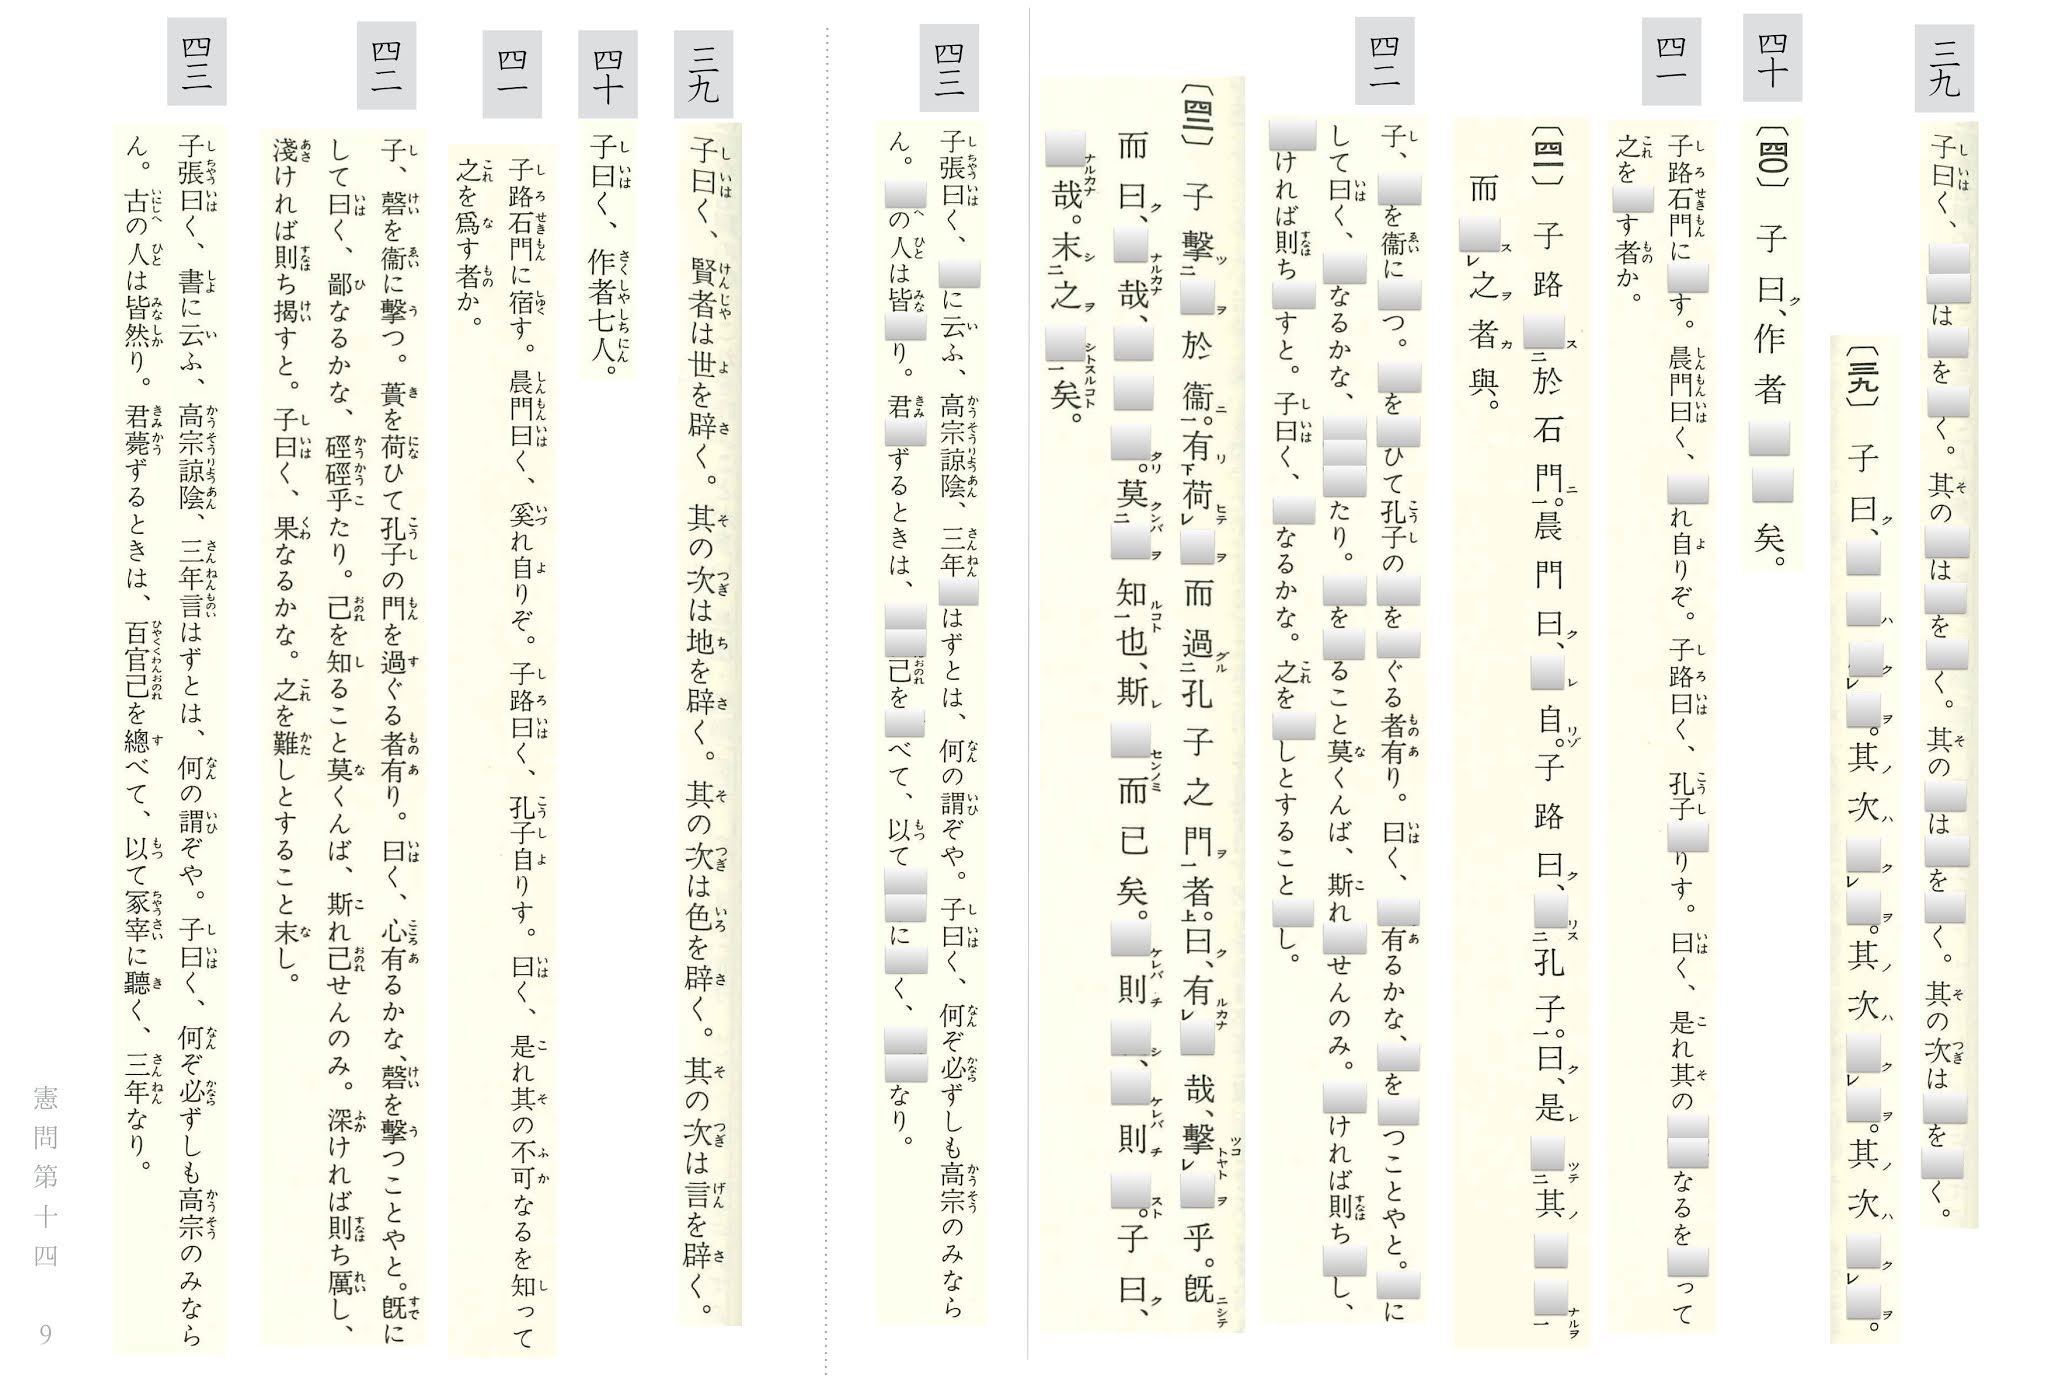 三九
子曰く、□□は□を□く。其の□は□を□く。其の□は□を□く。其の次は□を□く。
〔三九〕子曰、□□□□。其次□□。其次□□。其次□□。
四十
〔四〇〕子曰、作者□□矣。
四一
子路石門に□す。晨門曰く、□れ自りぞ。子路曰く、孔子□りす。曰く、是れ其の□□なるを□って
之を□す者か。
〔四一〕子路□於石門。晨門曰、□自。子路曰、□孔子。曰、是□其□□
而□之者與。
四二
子、□を衞に□つ。□を□ひて孔子の□を□ぐる者有り。曰く、□有るかな、□を□つことやと。□に
して曰く、□なるかな、□□□たり。□を□ること莫くんば、斯れ□せんのみ。□ければ則ち□し、
□ければ則ち□すと。子曰く、□なるかな。之を□しとすること□し。
〔四二〕子擊□於衞。有荷□而過孔子之門者。曰、有□哉、擊□乎。旣
而曰、□哉、□□□。莫□知也、斯□而已矣。□則□、□則□。子曰、
□哉。末之□矣。
四三
子張曰く、□に云ふ、高宗諒陰、三年□はずとは、何の謂ぞや。子曰く、何ぞ必ずしも高宗のみなら
ん。□の人は皆□り。君□ずるときは、□□己を□べて、以て□□に□く、□□なり。
三九
子曰く、賢者は世を辟く。其の次は地を辟く。其の次は色を辟く。其の次は言を辟く。
四十
子曰く、作者七人。
四一
子路石門に宿す。晨門曰く、奚れ自りぞ。子路曰く、孔子自りす。曰く、是れ其の不可なるを知って
之を爲す者か。
四二
子、磬を衞に擊つ。蕢を荷ひて孔子の門を過ぐる者有り。曰く、心有るかな、磬を擊つことやと。旣に
して曰く、鄙なるかな、硜硜乎たり。己を知ること莫くんば、斯れ己せんのみ。深ければ則ち厲し、
淺ければ則ち揭すと。子曰く、果なるかな。之を難しとすること末し。
四三
子張曰く、書に云ふ、高宗諒陰、三年言はずとは、何の謂ぞや。子曰く、何ぞ必ずしも高宗のみなら
ん。古の人は皆然り。君薨ずるときは、百官己を總べて、以て冢宰に聽く、三年なり。
憲問第十四 9